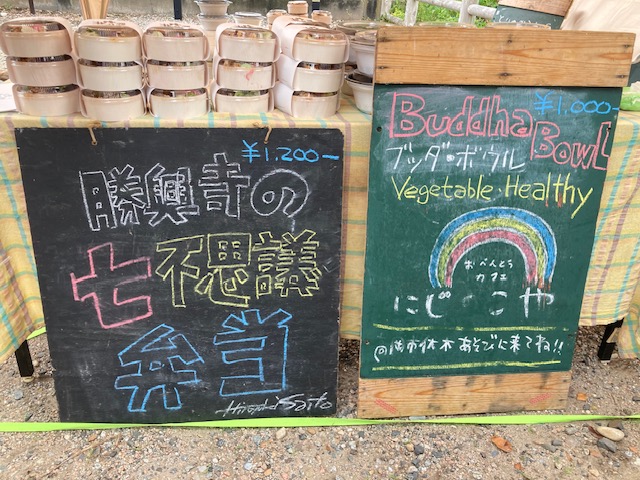 ¥1,200-
勝興寺の
七不思議
弁当
Hiroyuki Saito
¥1,000-
Buddha
BowL
ブッダ・ボウル
Vegetable・Healthy
おべんとう
カフェ
にじ
こや
あそびに来てね!!